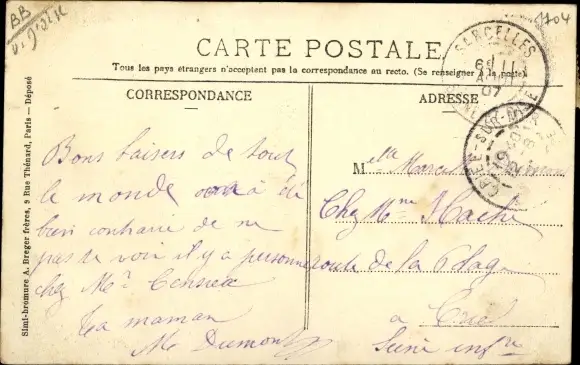 BB
1704
CARTE POSTALE
Tous les pays étrangers n'acceptent pas la correspondance au recto. (Se renseigner à la poste)
CORRESPONDANCE
ADRESSE
SARCELLES
Simi-bromure A. Breger frères, 9 Rue Thénard, Paris — Déposé
Bons baisers de tout
le monde on a été
bien contraire de ne
pas te voir il y a personne
chez Mr
ta maman
Me Dumont
Melle Marcelle
Chez Mme Haché
route de la Plage
a Criel
Seine infre